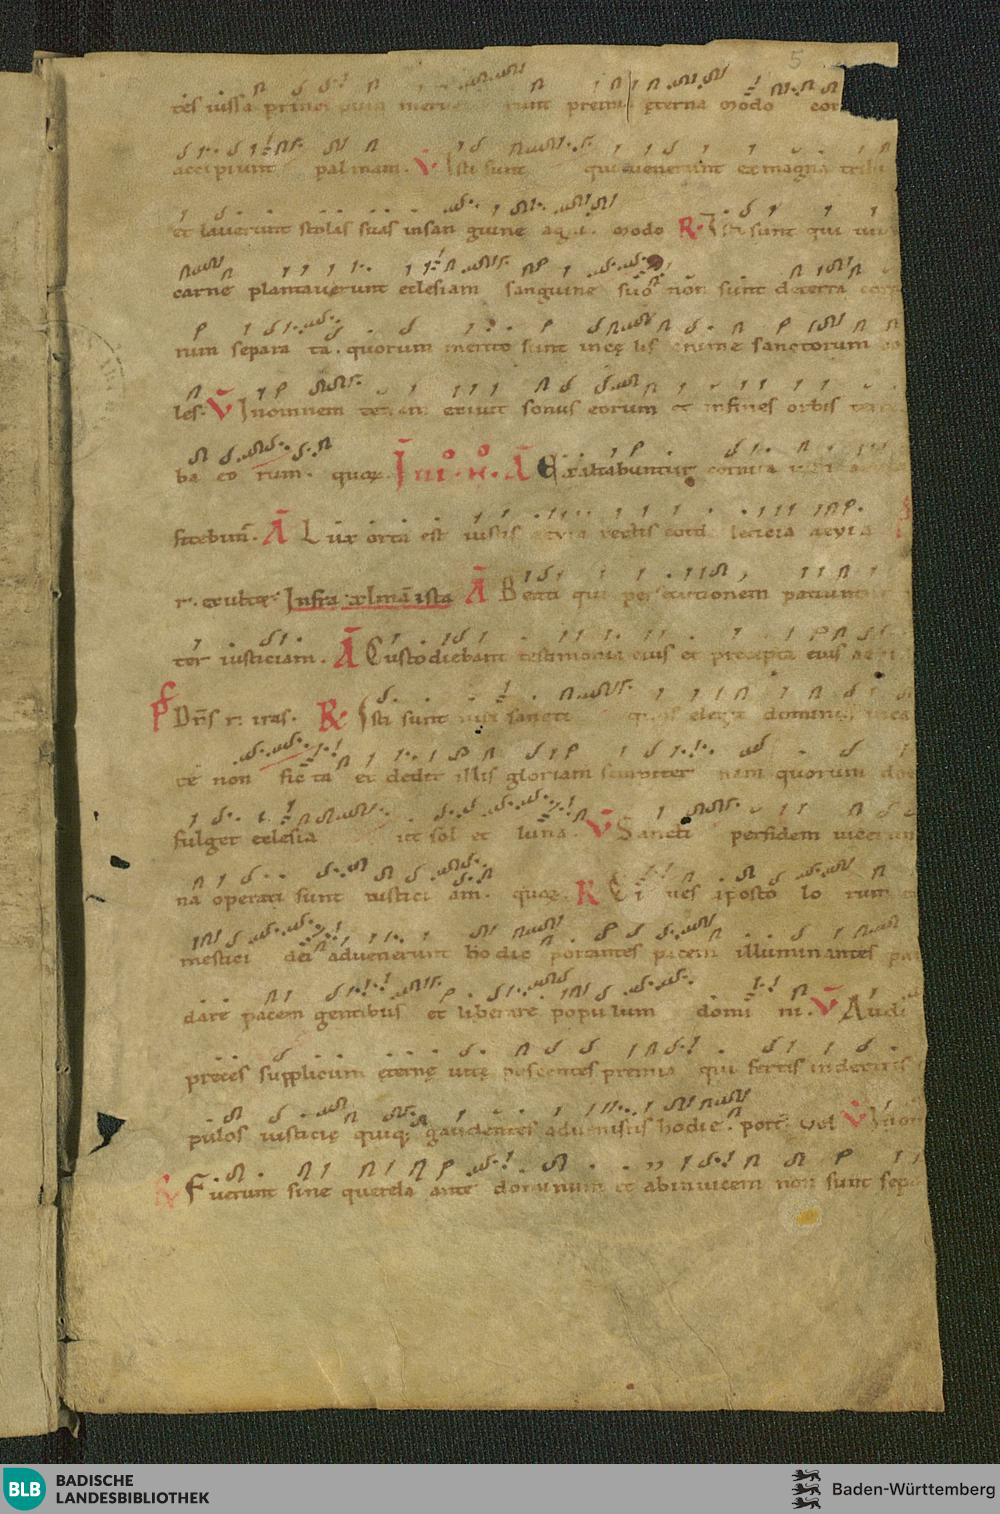 5
tes iussa princi pum merue runt premia ęterna modo cor
accipiunt palmam. V Isti sunt qui uenerunt ex magna tribu
et lauerunt stolas suas in san guine agni. modo R Isti sunt qui uiu
carne plantauerunt ecclesiam sanguine suo non sunt deterra
rum separa ta. quorum merito sunt in cę lis anime sanctorum
les. V In omnem terram exiuit sonus eorum et in fines orbis terrę
ba eo rum. quorę. In III. N. A Exaltabuntur cornua iusti
fitebunt. A Lux orta est iustis aeuia rectis cord leticia aeuia
r. exultę. Infra xlmā ista A Beati qui persecutionem patiunt
ter iusticiam. A Custodiebant testimonia eius et precepta eius
Ps Dn̄s r. iras. R Isti sunt uiri sancti quos elegit dominus
te non fic ta et dedit illis gloriam sempiter nam quorum doc
fulget eclesia ut sol et luna. V Sancti per fidem uicerun
na operati sunt iustici am. quorę. R Ci ues aposto lo rum
mestici dei aduenerunt hodie portantes pacem illuminantes pa
dare pacem gentibus et liberare popu lum domi ni. V Audi
preces supplicum ęternę uitę poscentes premia qui fertis in dextris
pulos iusticię quiq; gaudentes aduenistis hodie. port. uel V In om
R Fuerunt sine querela ante dominum et abinuicem non sunt sepa
BLB BADISCHE
LANDESBIBLIOTHEK
Baden-Württemberg